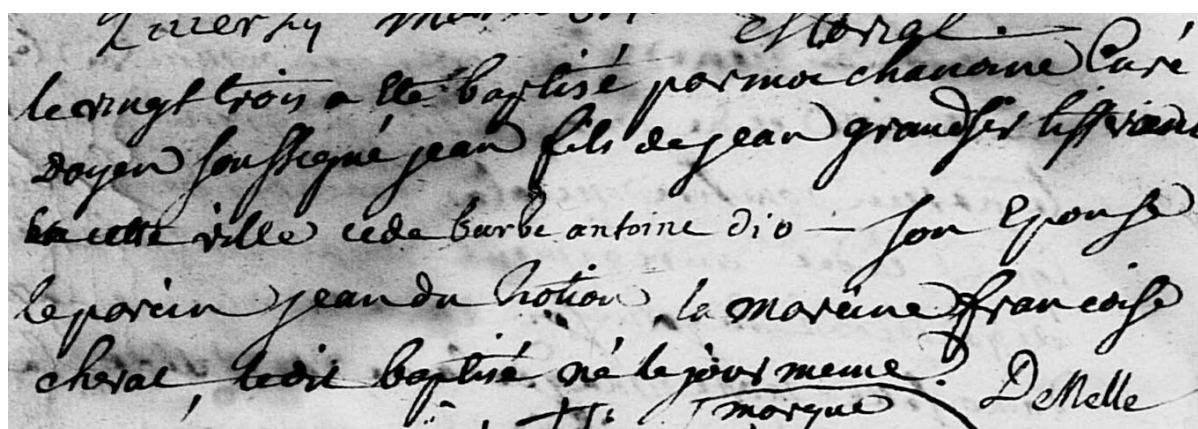 le vingt trois a ete baptisé par moi chanoine Curé
doyen soussigné jean fils de jean grandfils tisseran
en cette ville et de barbe antoine dio — son Epouse
le parein jean du hotion la mareine francoise
cheval ledit baptisé né le jour meme
marque DeMelle